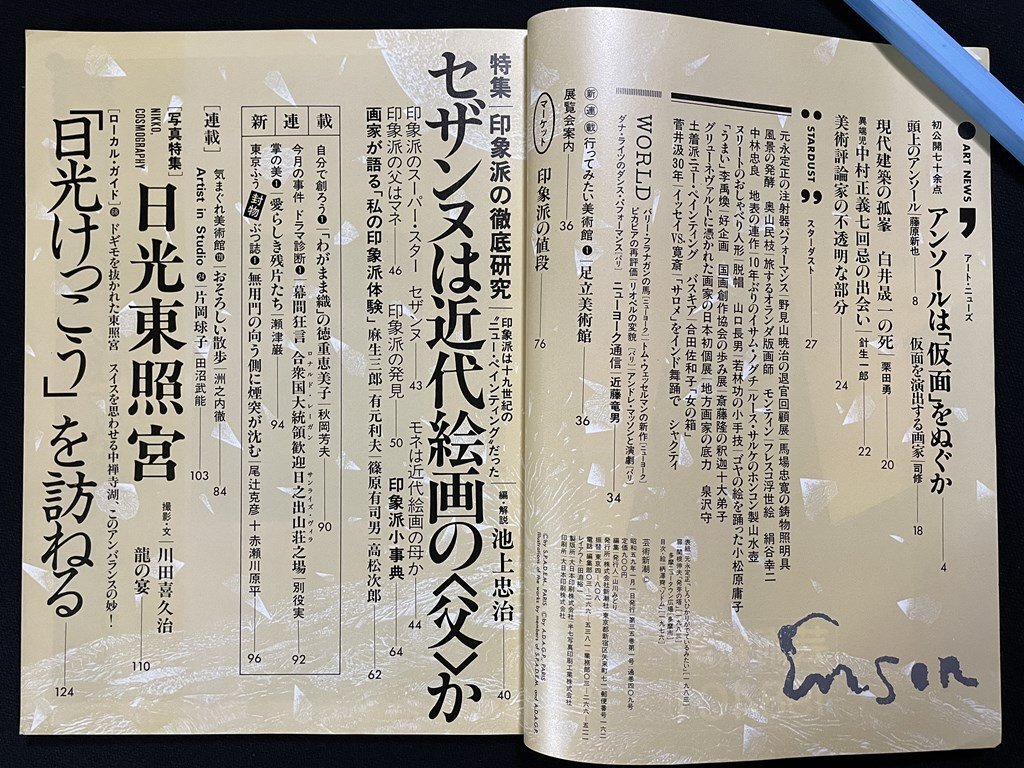 ART NEWS アート・ニューズ
初公開七十余点 アンソールは「仮面」をぬぐか 4
頭上のアンソール 藤原新也 8 仮面を演出する画家 司修 18
現代建築の孤峯 白井晟一の死 栗田勇 20
異端児 中村正義七回忌の出会い 針生一郎 22
美術評論家の不透明な部分 24
STARDUST スターダスト 27
元永定正の注射器パフォーマンス 野見山暁治の退官回顧展 馬場忠寛の鋳物照明具
風景の発酵 奥山民枝 旅するオランダ版画師 モンティン フレスコ浮世絵 絹谷幸二
中林忠良 地表の連作 10年ぶりのイサム・ノグチ ルース・サルケのホンコン製山水壺
ヌリートのおしゃべり人形 脱帽 山口長男 若林功の小手技 「ゴヤの絵を踊った小松原庸子
「うまい」李禹煥 好企画 国画創作協会の歩み展 斎藤隆の釈迦十大弟子
グリューネヴァルトに憑かれた画家の日本初個展 地方画家の底力 泉沢守
土着派ニュー・ペインティング バスキア 合田佐和子「女の箱」
菅井汲30年 イッセイVS.寛斎 「サロメ」をインド舞踊で シャクティ
WORLD バリー・フラナガンの馬[ニューヨーク] トム・ウェッセルマンの新作[ニューヨーク]
ピカビアの再評価 リオペルの変貌[パリ] アンドレ・マッソンと演劇[パリ]
ダナ・ライツのダンス・パフォーマンス[パリ] ニューヨーク通信 近藤竜男 34
新連載 行ってみたい美術館❶ 足立美術館 36
展覧会案内 36
マーケット 印象派の値段 76
芸術新潮©
昭和五九年一月一日発行 第三五巻第一号 通巻四〇九号
定価九〇〇円
編集・発行人 山川みどり
発行所 株式会社新潮社 東京都新宿区矢来町七一 郵便番号一六二
振替 東京四−八〇八
レイアウト 田淵裕一
印刷所 大日本印刷株式会社
©by S.P.A.D.E.M. PARIS ©by A.D.A.G.P. PARIS
Illustration of the works by members of S.P.A.D.E.M. and A.D.A.G.P.
Ensor
特集 印象派の徹底研究 印象派は十九世紀の“ニュー・ペインティング”だった 編・解説 池上忠治 40
セザンヌは近代絵画の〈父〉か
印象派のスーパー・スター セザンヌ 43 モネは近代絵画の母か 44
印象派の父はマネ 46 印象派の発見 50 印象派小事典 64
画家が語る「私の印象派体験」 麻生三郎 有元利夫 篠原有司男 高松次郎 62
新連載
自分で創ろう❶ 「わがまま織」の徳重恵美子 秋岡芳夫 90
今月の事件 ドラマ診断❶ 幕間狂言 合衆国大統領歓迎日之出山荘之場 別役実 92
ロナルド・レーガン サンライズ・ヴィラ
掌の美❶ 愛らしき残片たち 瀬津巌 94
東京ふう封物ぶつ誌❶ 無用門の向う側に煙突が沈む 尾辻克彦 十 赤瀬川原平 96
[連載]
気まぐれ美術館 おそろしい散歩 洲之内徹 84
Artist in Studio ㉔ 片岡球子 田沼武能 103
[写真特集] 日光東照宮 撮影・文 川田喜久治 龍の宴 110
NIKKO, COSMOGRAPHY
[ローカル・ガイド] ドギモを抜かれた東照宮 スイスを思わせる中禅寺湖、このアンバランスの妙!
「日光けっこう」を訪ねる 124